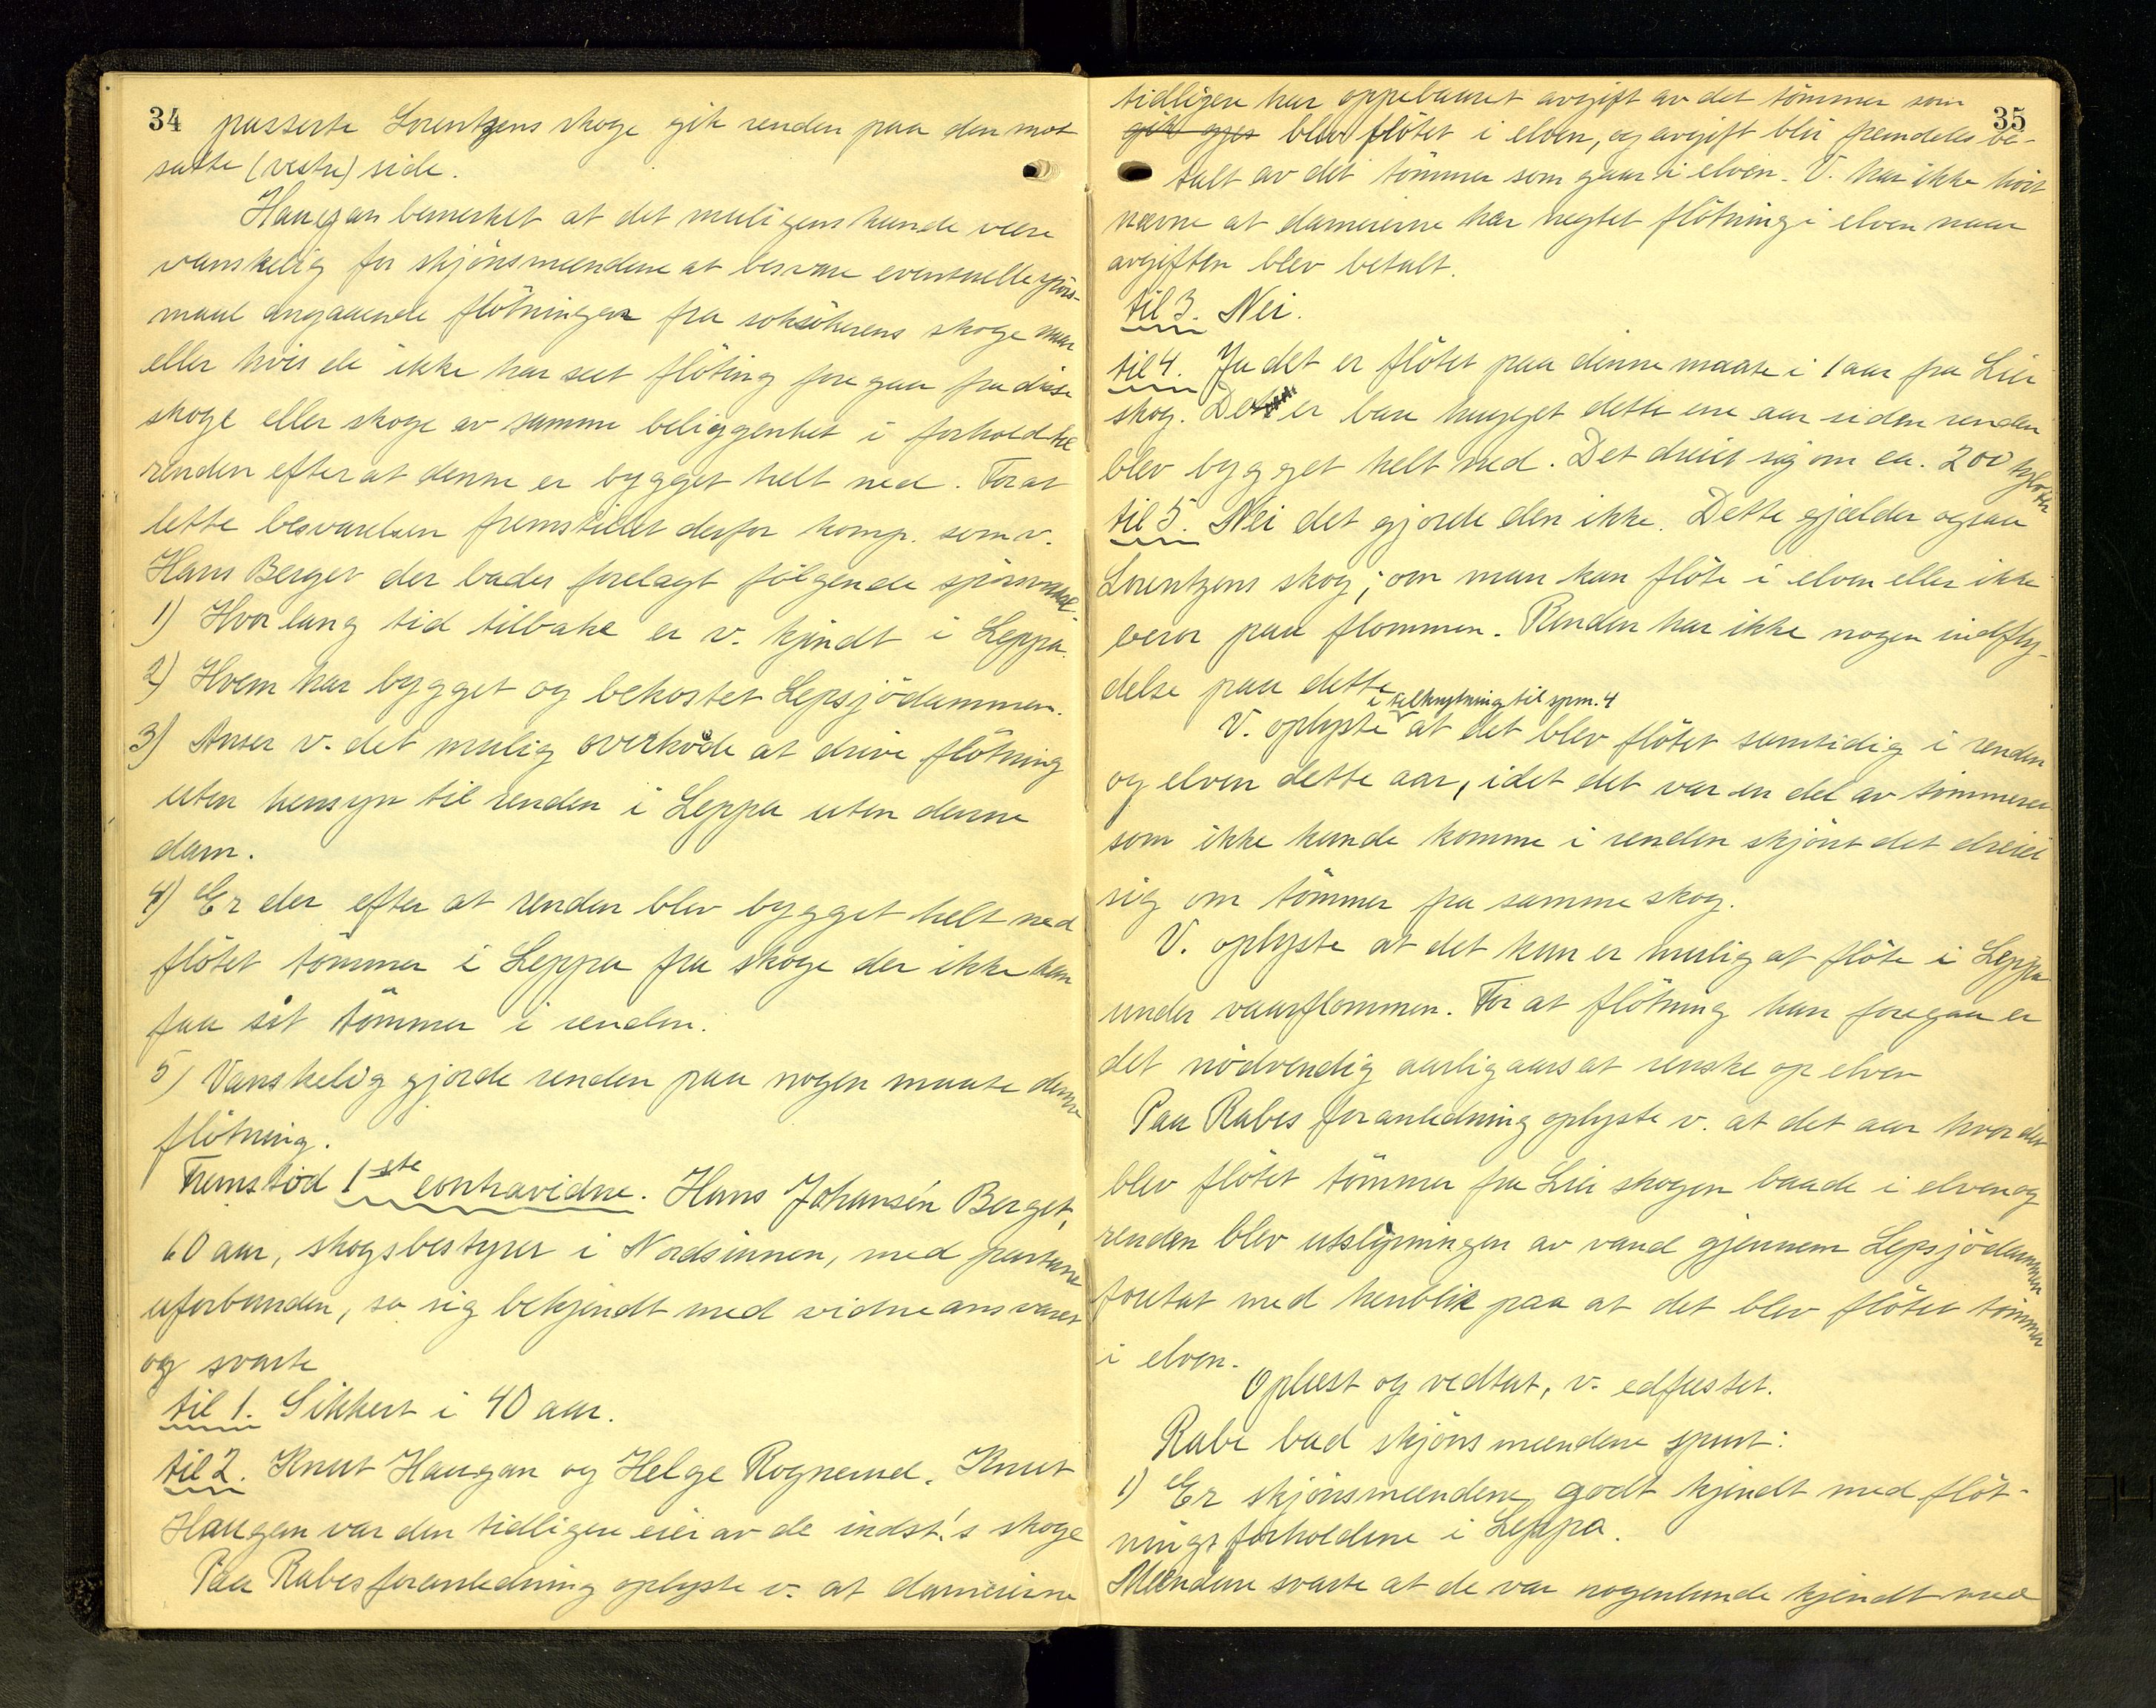 34
passerte Lorentzens skoge gik renden paa den mot
satte (vestre) side.
Haugan bemerket at det muligens kunde være
vanskelig for skjönsmændene at besvare eventuelle spörs-
maal angaaende flötningen fra saksökerens skoge naar
eller hvis de ikke har seet flöting foregaa fra disse
skoge eller skoge av samme beliggenhet i forhold til
renden efter at denne er bygget helt ned. For at
lette besvarelsen fremstillet derfor komp. som v.
Hans Berget der bades forelagt fölgende spörsmaal.
1) Hvor lang tid tilbake er v. kjendt i Leppa.
2) Hvem har bygget og bekostet Lepsjödammen.
3) Anser v. det mulig overhode at drive flötning
uten hensyn til renden i Leppa uten denne
dam.
4) Er der efter at renden blev bygget helt ned
flötet tömmer i Leppa fra skoge der ikke kan
faa sit tömmer i renden.
5) Vanskelig gjorde renden paa nogen maate denne
flötning.
Fremstod 1ste contravidne. Hans Johansen Berget,
60 aar, skogsbestyrer i Nordsinnen, med partene
uforbunden, sa sig bekjendt med vidneansvaret
og svarte
til 1. Sikkert i 40 aar.
til 2. Knut Haugan og Helge Rognerud. Knut
Haugan var den tidligere eier av de indst.'s skoge
Paa Rabes foranledning oplyste v. at dameierne
35
tidligere har oppebaaret avgift av det tömmer som
gik gjen blev flötet i elven, og avgift blir fremdeles be-
talt av det tömmer som gaar i elven. V. har ikke hört
nævne at dameierne har negtet flötning i elven naar
avgiften blev betalt.
til 3. Nei.
til 4. Ja det er flötet paa denne maate i 1 aar fra Lier
skog. Det er bare hugget dette ene aar siden renden
blev bygget helt ned. Det dreiet sig om ca. 200 tylvter
til 5. Nei det gjorde den ikke. Dette gjælder ogsaa
Lorentzens skog; om man kan flöte i elven eller ikke
beror paa flommen. Renden har ikke nogen indfly-
delse paa dette.
i tilknytning til spm. 4
V. oplyste at det blev flötet samtidig i renden
og elven dette aar, idet det var en del av tömmeret
som ikke kunde komme i renden skjönt det dreiet
sig om tömmer fra samme skog.
V. oplyste at det kun er mulig at flöte i Leppa
under vaarflommen. For at flötning kan foregaa er
det nödvendig aarligaars at renske op elven
Paa Rabes foranledning oplyste v. at det aar hvor der
blev flötet tömmer fra Lier skogen baade i elven og
renden blev utslipningen av vand gjennem Lepsjödammen
foretat med henblik paa at det blev flötet tömmer
i elven.
Oplæst og vedtat, v. edfæstet.
Rabe bad skjönsmændene spurt:
1) Er skjönsmændene godt kjendt med flöt-
ningsforholdene i Leppa.
Mændene svarte at de var nogenlunde kjendt med